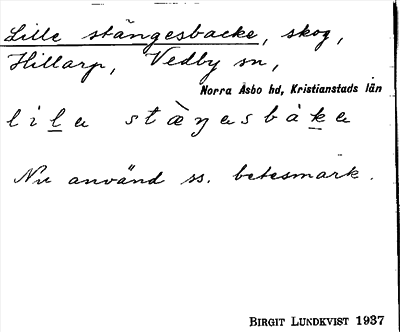 Lille stängesbacke, skog,
Hillarp, Vedby sn,
Norra Åsbo hd, Kristianstads län
lila stæ̀ŋasbàka
Nu använd ss. betesmark.
BIRGIT LUNDKVIST 1937